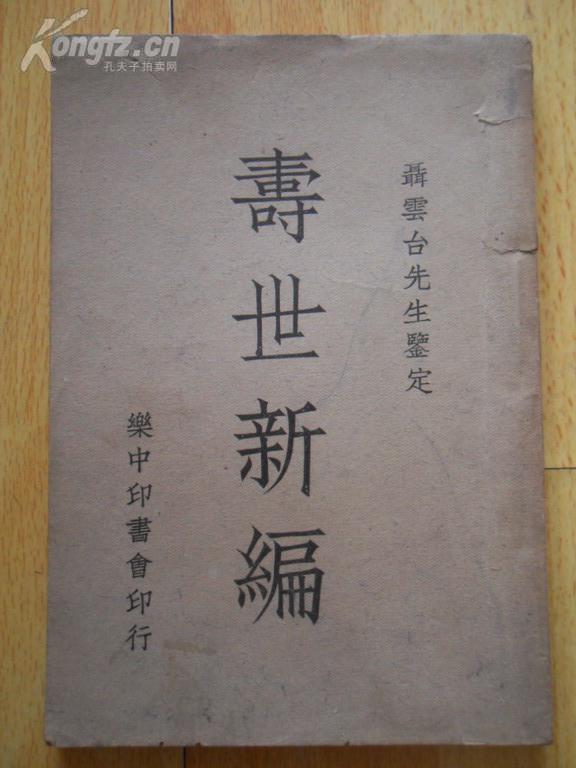 Kongfz.cn
孔夫子拍卖网
聶雲台先生鑒定
壽世新編
樂中印書會印行